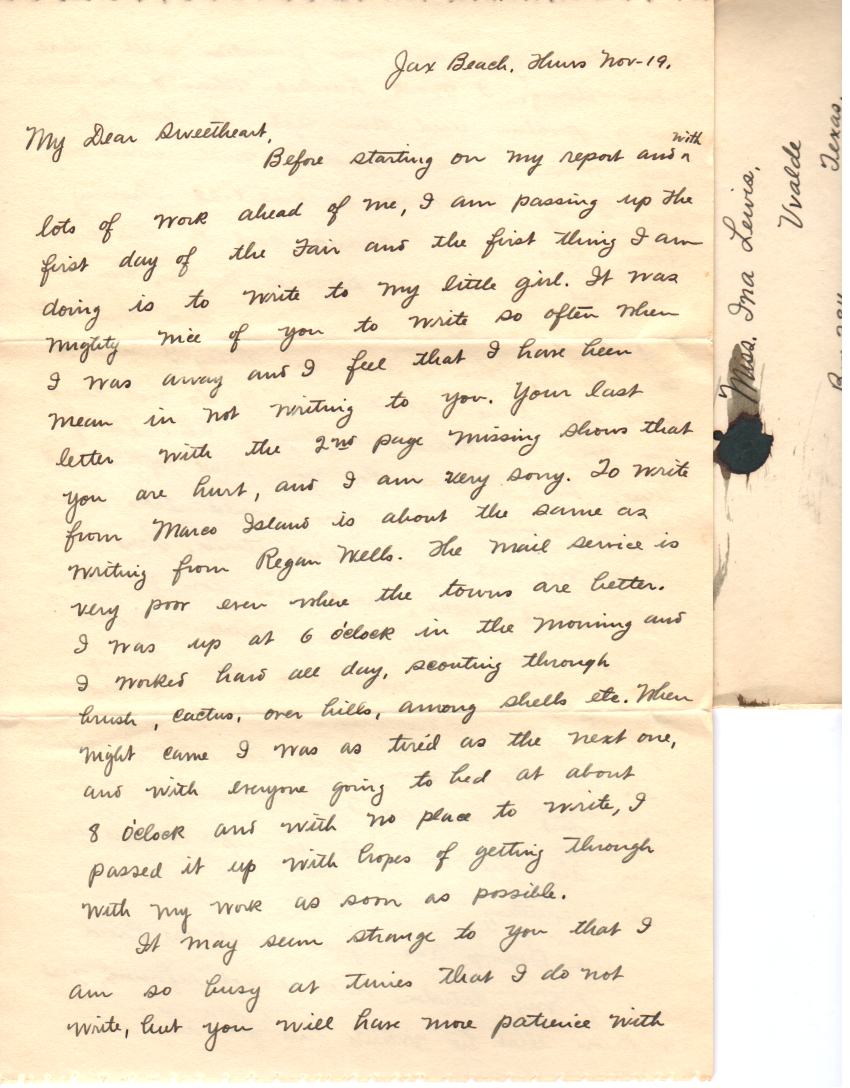 Jax Beach, Thurs Nov-19.
My Dear Sweetheart,
with
Before starting on my report and ^
lots of work ahead of me, I am passing up the
first day of the Fair and the first thing I am
doing is to write to my little girl. It was
mighty nice of you to write so often when
I was away and I feel that I have been
mean in not writing to you. Your last
letter with the 2nd page missing shows that
you are hurt, and I am very sorry. To write
from Marco Island is about the same as
writing from Regan Wells. The mail service is
very poor even where the towns are better.
I was up at 6 o'clock in the morning and
I worked hard all day, scouting through
brush, cactus, over hills, among shells etc. When
night came I was as tired as the next one,
and with everyone going to bed at about
8 o'clock and with no place to write, I
passed it up with hopes of getting through
with my work as soon as possible.
It may seem strange to you that I
am so busy at times that I do not
write, but you will have more patience with
Miss. Ina Lewis,
Uvalde
Texas.